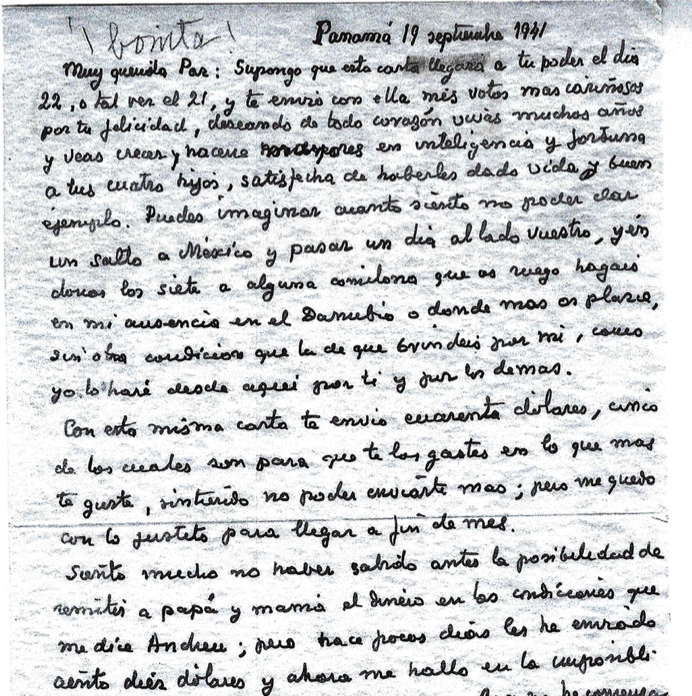 ¡bonita!
Panamá 19 septiembre 1941
Muy querida Paz: Supongo que esta carta llegará a tu poder el dia
22, o tal vez el 21, y te envio con ella mis votos mas cariñosos
por tu felicidad, deseando de todo corazón vivas muchos años
y veas crecer y hacerse mayores en inteligencia y fortuna
a tus cuatro hijos, satisfecha de haberles dado vida y buen
ejemplo. Puedes imaginar cuanto siento no poder dar
un salto a México y pasar un dia al lado vuestro,
los siete a alguna comilona que os ruego hagais
en mi ausencia en el Danubio o donde mas os plazca,
sin otra condicion que la de que brindeis por mi, como
yo lo haré desde aqui por ti y por los demas.
Con esta misma carta te envio cuarenta dólares, cinco
de los cuales son para que te los gastes en lo que mas
te guste, sintiendo no poder enviarte mas; pero me quedo
con lo justito para llegar a fin de mes.
Siento mucho no haber sabido antes la posibilidad de
remitir a papá y mamá el dinero en las condiciones que
me dice Andreu; pero hace pocos dias les he enviado
ciento diez dólares y ahora me hallo en la imposibli-